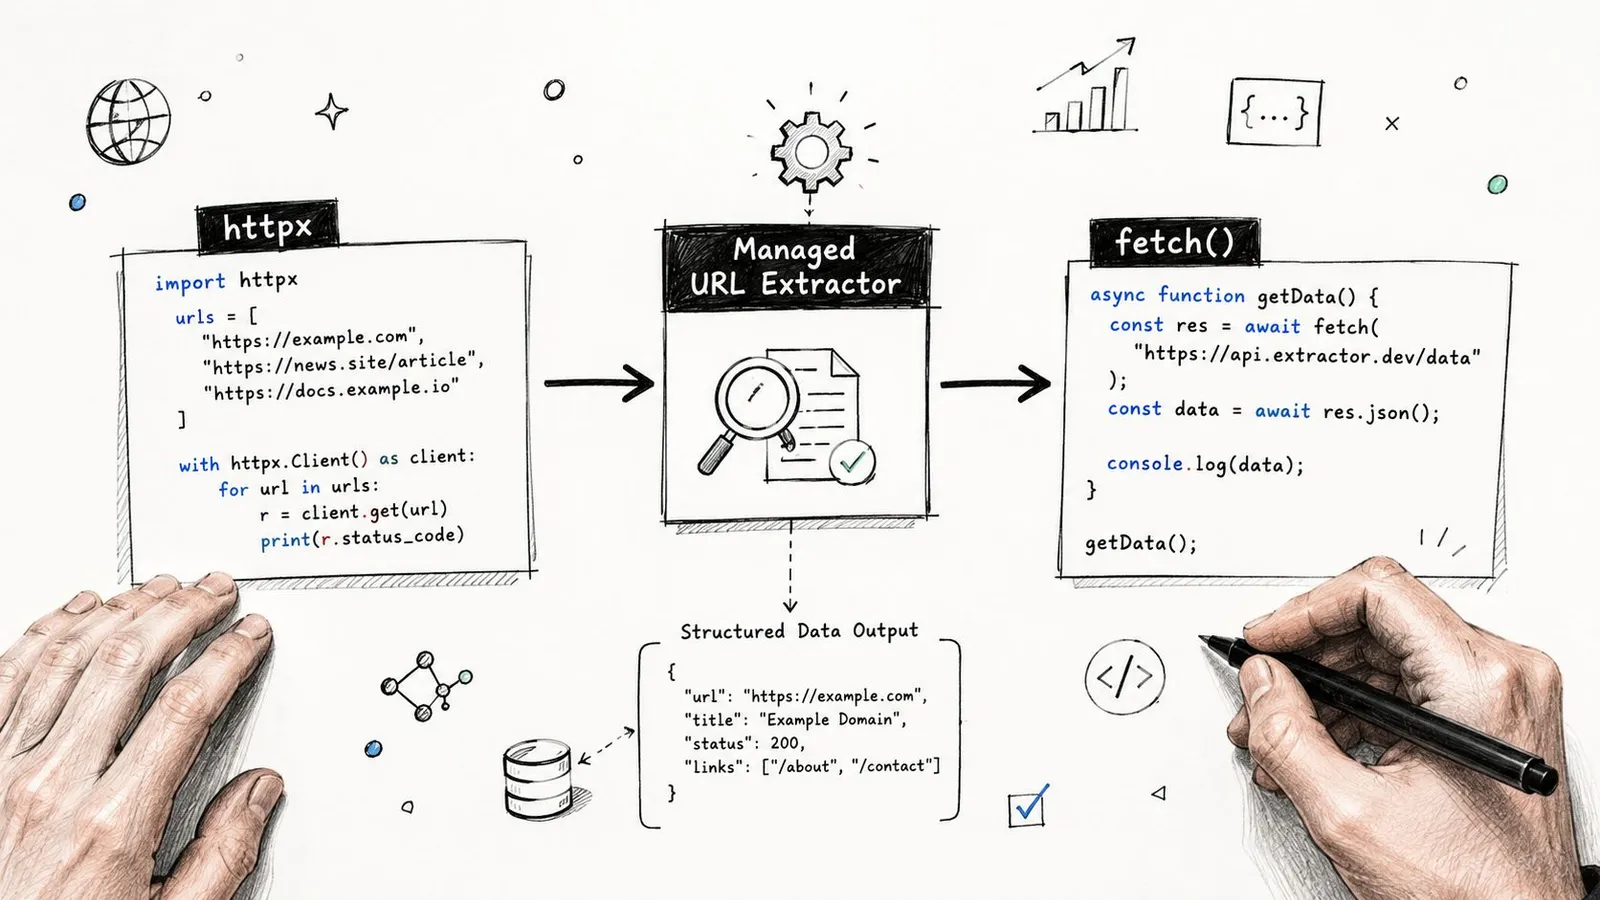 {...}
httpx
import httpx
urls = [
"https://example.com",
"https://news.site/article",
"https://docs.example.io"
]
with httpx.Client() as client:
for url in urls:
r = client.get(url)
print(r.status_code)
Managed
URL Extractor
fetch()
async function getData() {
const res = await fetch(
"https://api.extractor.dev/data"
);
const data = await res.json();
console.log(data);
}
getData();
Structured Data Output
{
"url": "https://example.com",
"title": "Example Domain",
"status": 200,
"links": ["/about", "/contact"]
}
</>